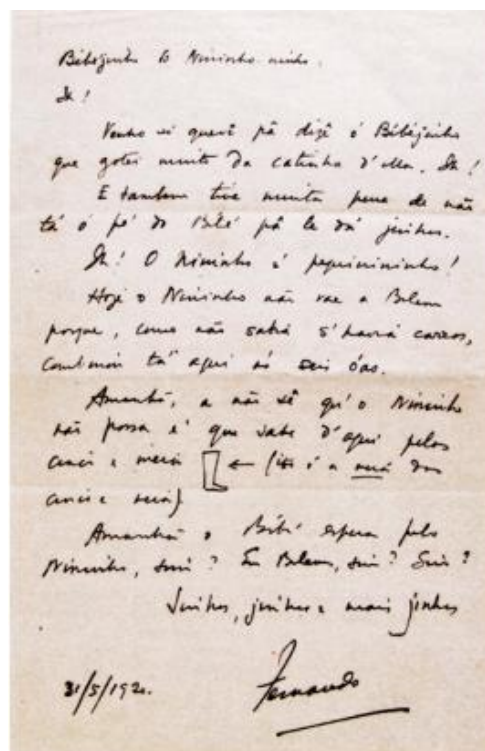 Bébézinho do Nininho-ninho.
Oh!
Venho só quevê pâ dizê ó Bébézinho
que gotei muito da catinha d'ella. Oh!
E também tive muita pena de não
tá ó pé do Bébé pâ le dá jinhos.
Oh! O Nininho é pequinininho!
Hoje o Nininho não vae a Belem
porque, como não sabia s'havia carros,
combinei tá aqui ás seis óas.
Amanhã, a não sê qu'o Nininho
não possa é que sahe d'aqui pelas
cinco e meia ← (isto é a meia das
cinco e meia)
Amanhã o Bébé espera pelo
Nininho, sim? Em Belem, sim? Sim?
Jinhos, jinhos e mais jinhos
31/5/1920.
Fernando